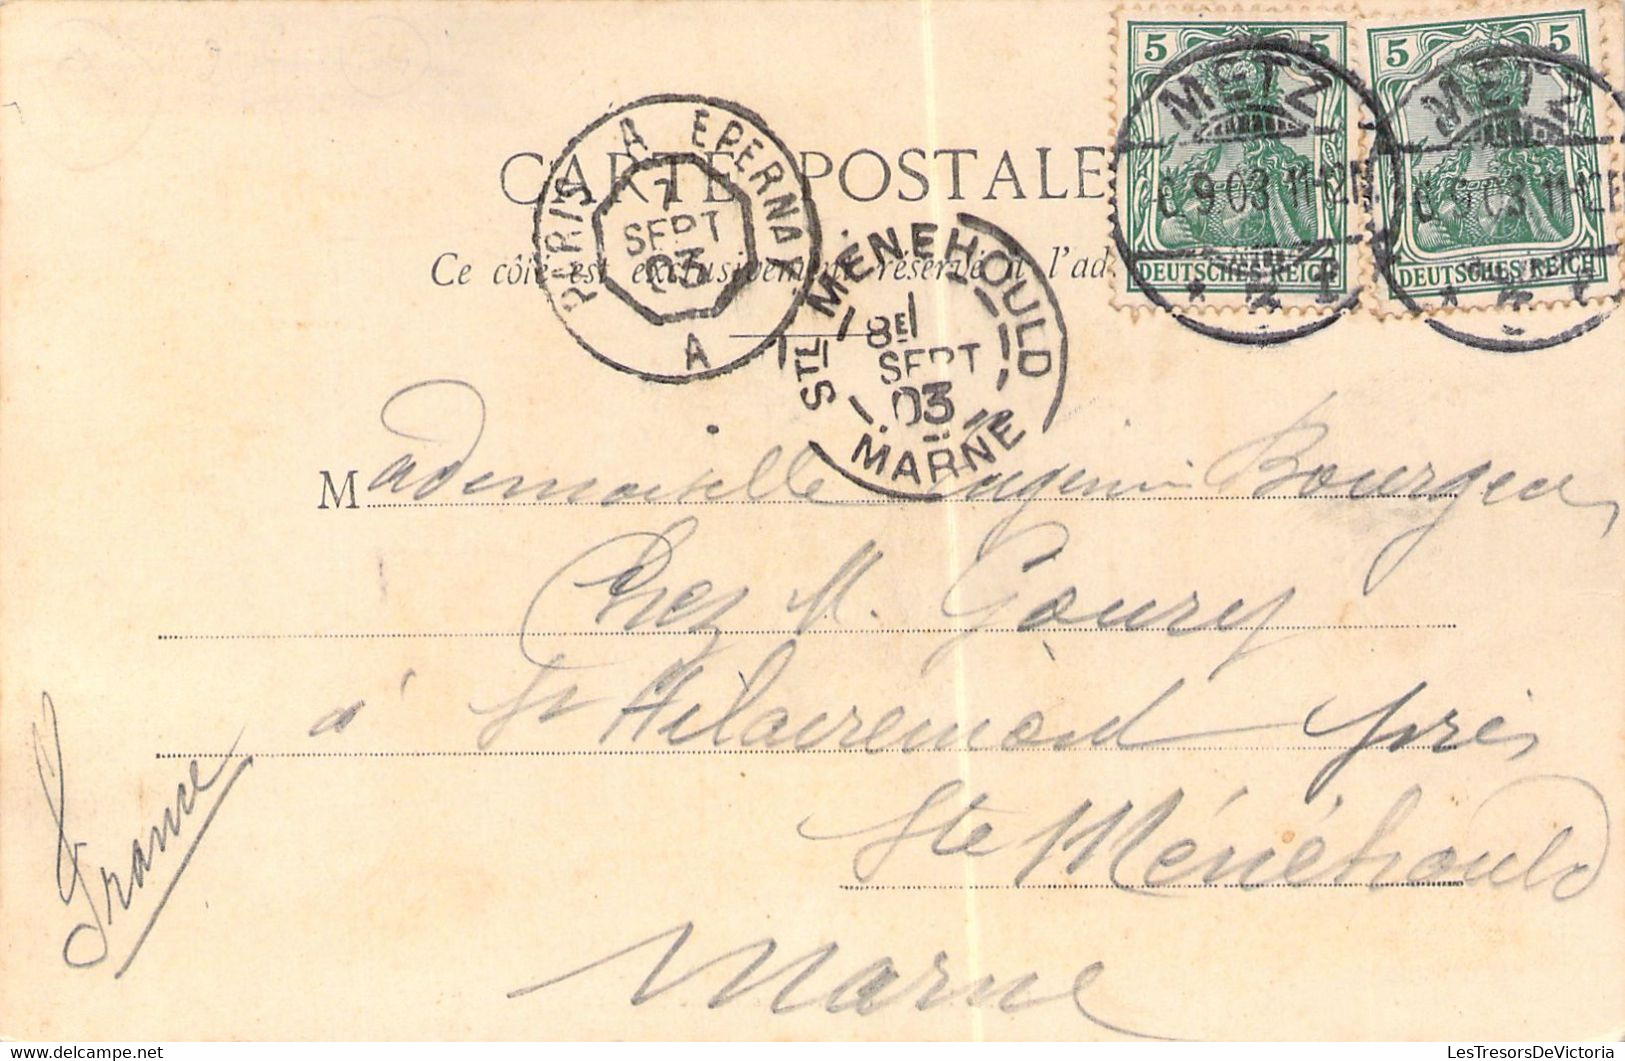 5 5 5 5
METZ METZ
6 9 03 11-12
11-12
DEUTSCHES REICH DEUTSCHES REICH
PARIS A EPERNAY
7
SEPT
03
A
CARTE POSTALE
Ce côté est exclusivement réservé à l'ad
STE MENEHOULD
8E
SEPT
03
MARNE
Mademoiselle Eugénie Bourgeois
Chez M. Goury
à St Hilairemont près
Ste Ménéhould
Marne
France
LesTresorsDeVictoria